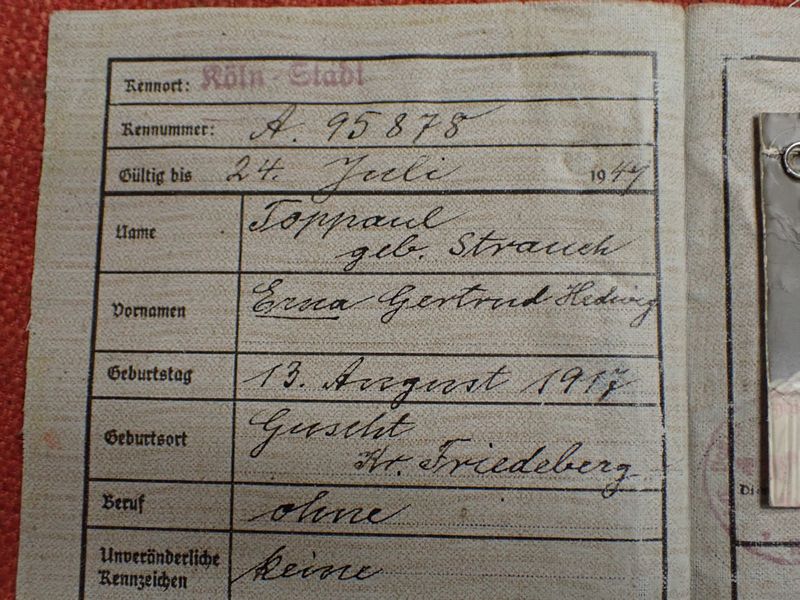 Kennort: Köln-Stadt
Kennummer: A. 95878
Gültig bis 24. Juli 1947
Name Toppaul
geb. Strauch
Vornamen Erna Gertrud Hedwig
Geburtstag 13. August 1917
Geburtsort Guscht
Kr. Friedeberg
Beruf ohne
Unveränderliche
Kennzeichen keine